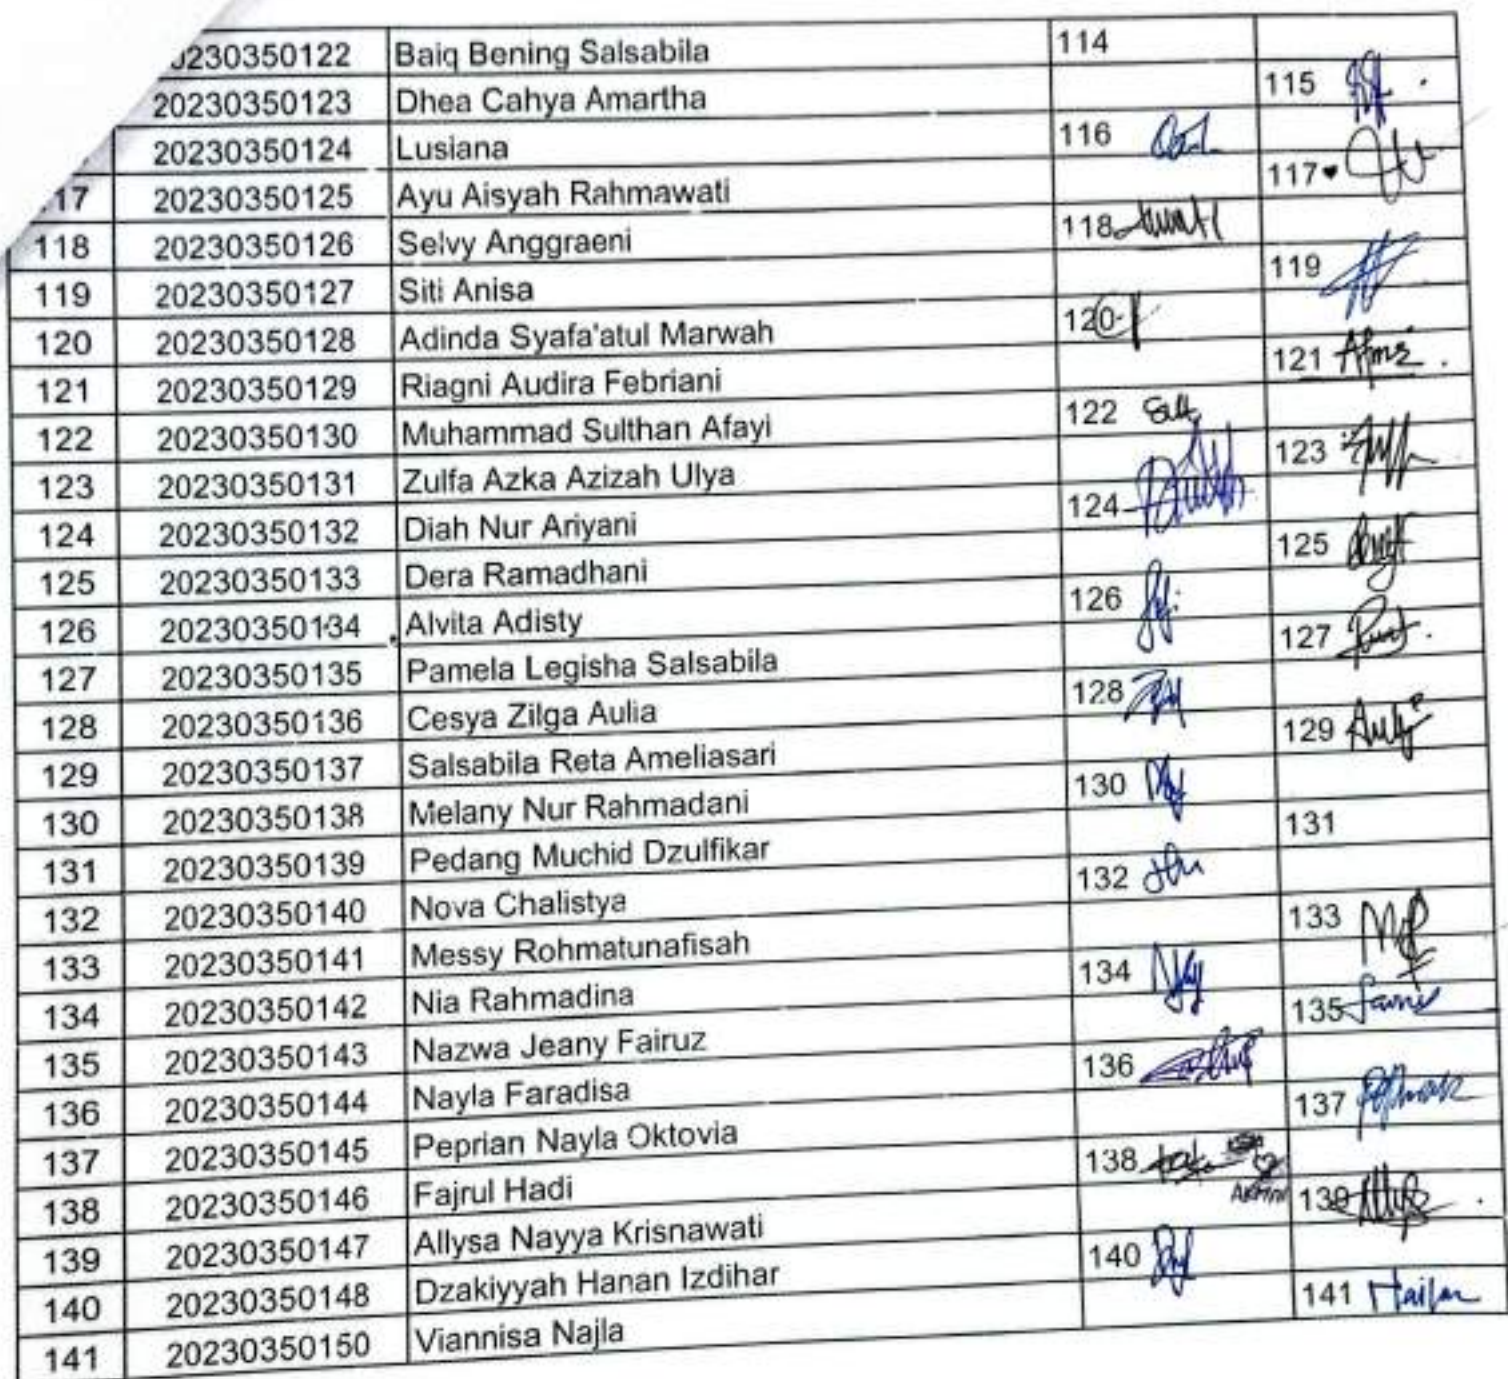 20230350122 Baiq Bening Salsabila 114
20230350123 Dhea Cahya Amartha 115
20230350124 Lusiana 116
117 20230350125 Ayu Aisyah Rahmawati 117
118 20230350126 Selvy Anggraeni 118
119 20230350127 Siti Anisa 119
120 20230350128 Adinda Syafa'atul Marwah 120
121 20230350129 Riagni Audira Febriani 121
122 20230350130 Muhammad Sulthan Afayi 122
123 20230350131 Zulfa Azka Azizah Ulya 123
124 20230350132 Diah Nur Ariyani 124
125 20230350133 Dera Ramadhani 125
126 20230350134 Alvita Adisty 126
127 20230350135 Pamela Legisha Salsabila 127
128 20230350136 Cesya Zilga Aulia 128
129 20230350137 Salsabila Reta Ameliasari 129
130 20230350138 Melany Nur Rahmadani 130
131 20230350139 Pedang Muchid Dzulfikar 131
132 20230350140 Nova Chalistya 132
133 20230350141 Messy Rohmatunafisah 133
134 20230350142 Nia Rahmadina 134
135 20230350143 Nazwa Jeany Fairuz 135
136 20230350144 Nayla Faradisa 136
137 20230350145 Peprian Nayla Oktovia 137
138 20230350146 Fajrul Hadi 138
139 20230350147 Allysa Nayya Krisnawati 139
140 20230350148 Dzakiyyah Hanan Izdihar 140
141 20230350150 Viannisa Najla 141